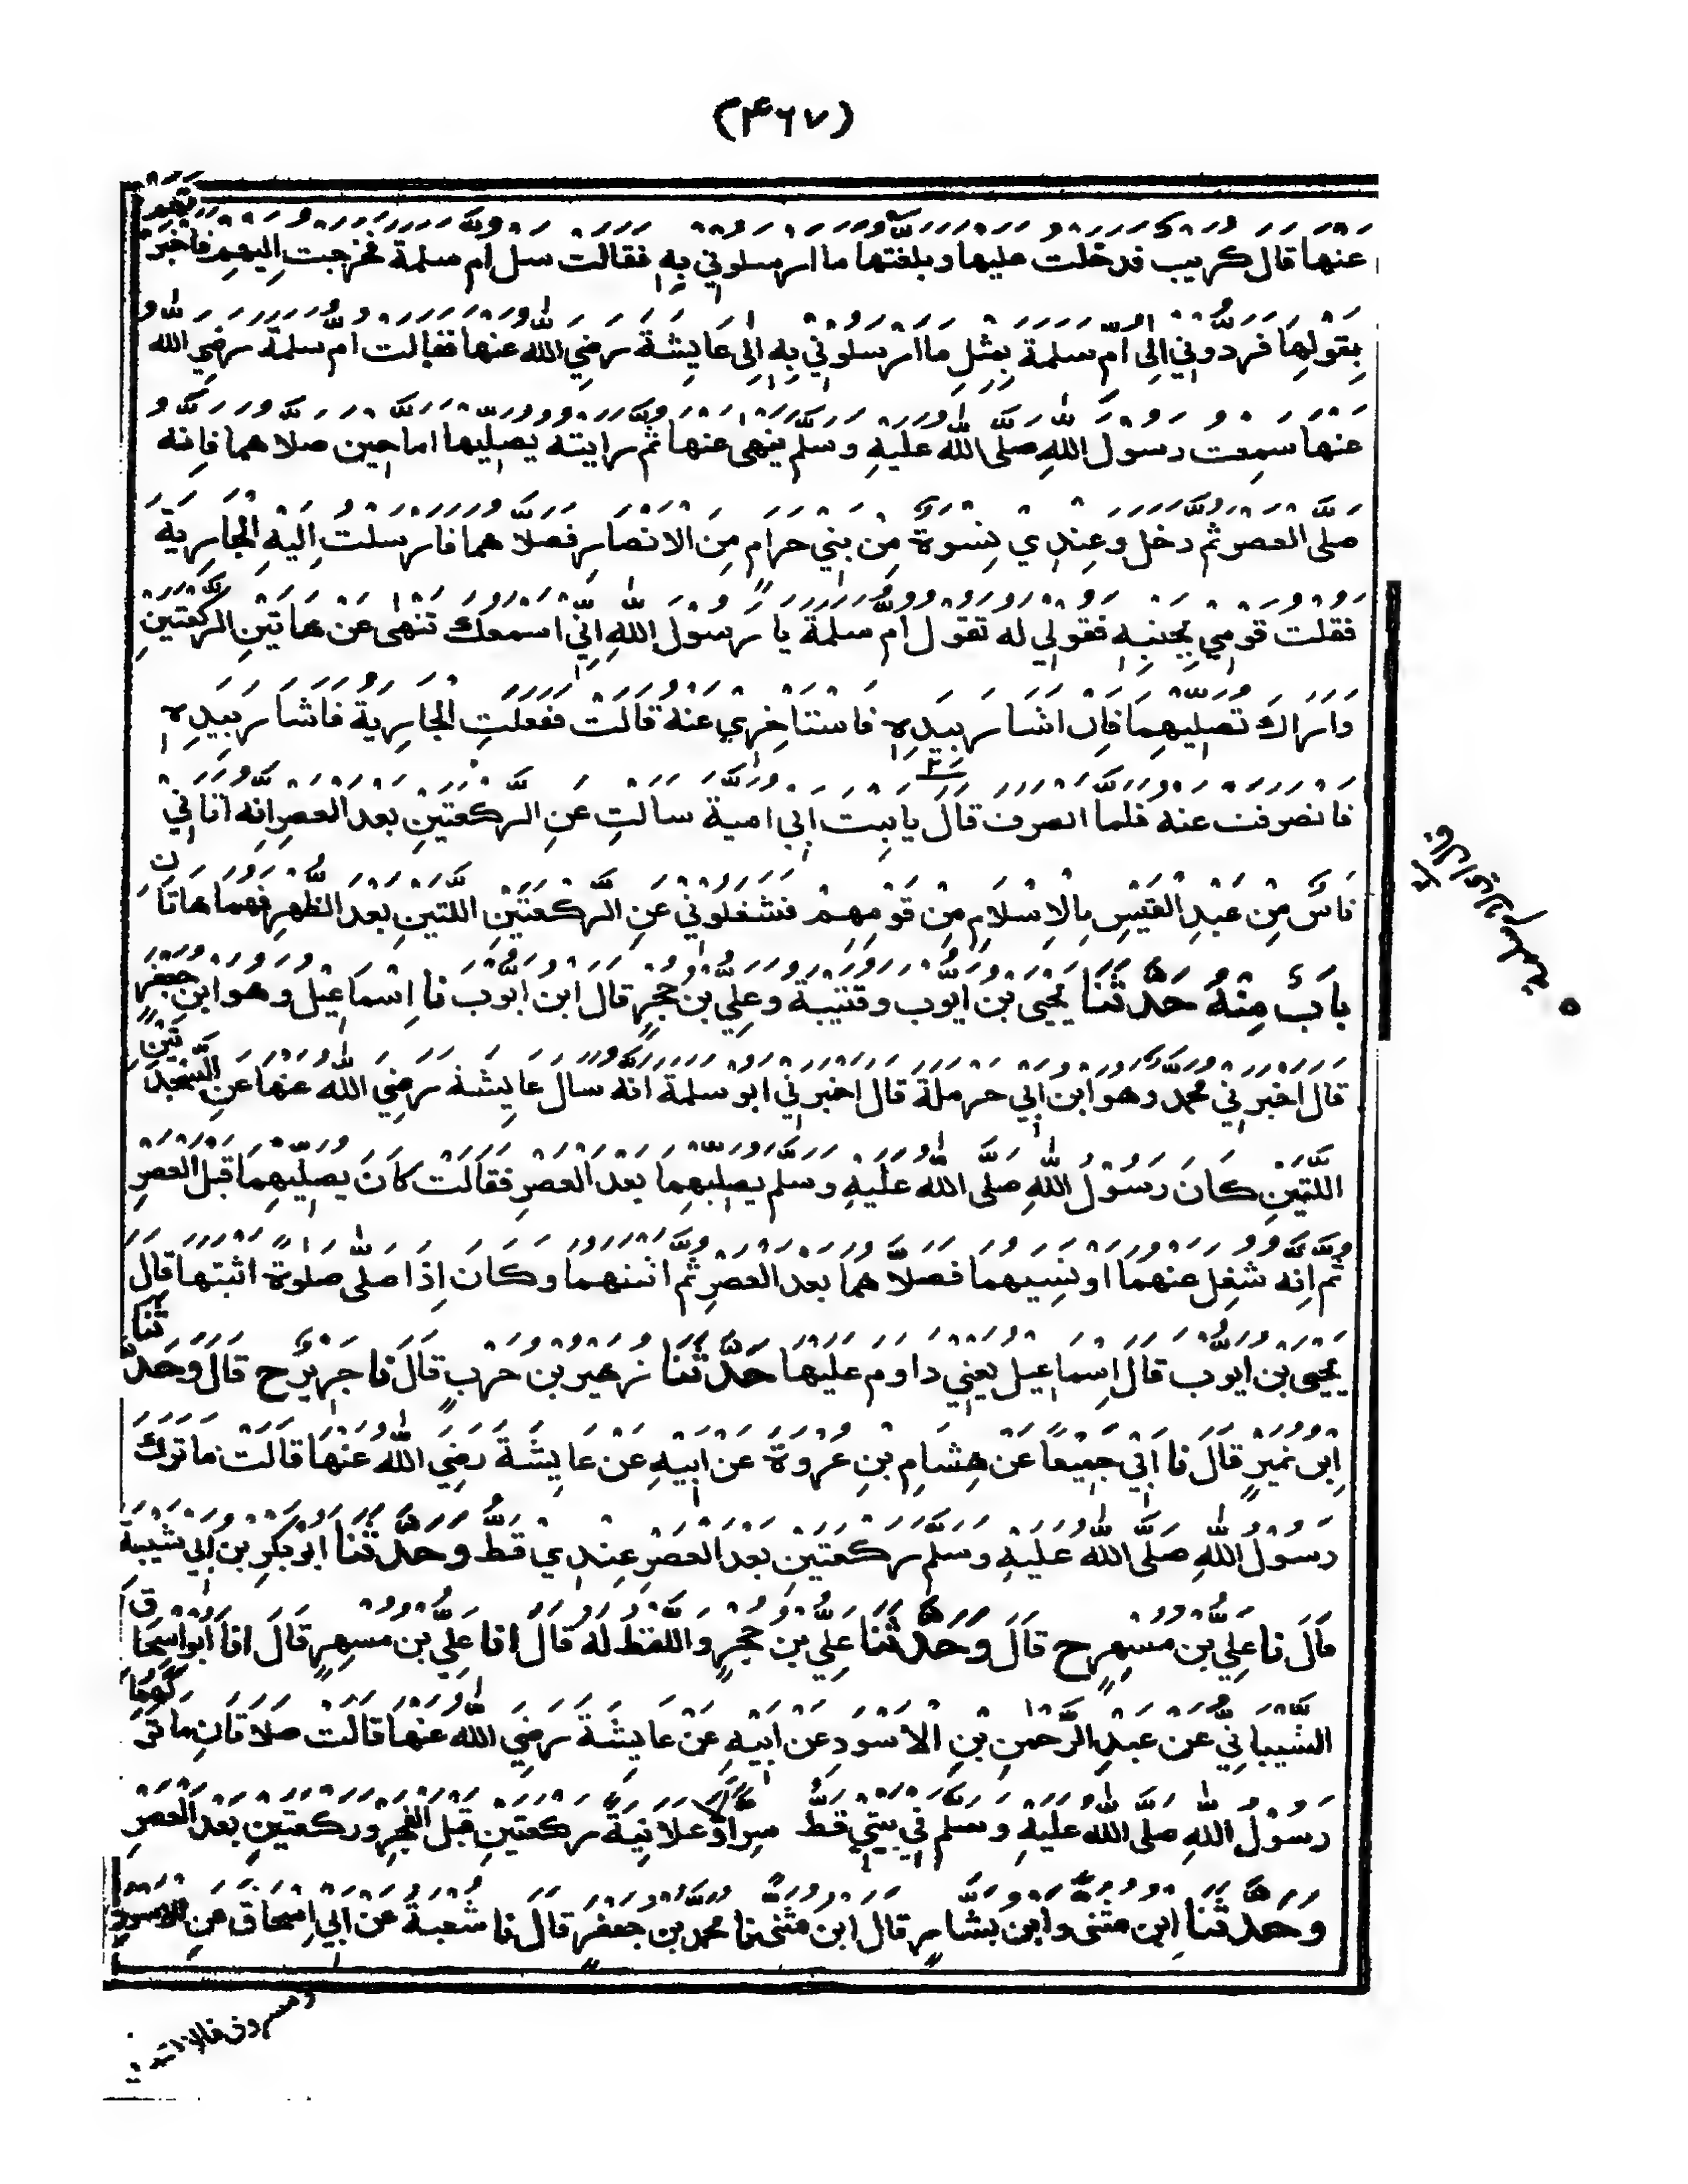 (۴۶۷)
عنها قال كريب فدخلت عليها وبلغتها ما ارسلوني به فقالت سل ام سلمة فخرجت اليهم فاخبرتهم
بقولها فردوني الى ام سلمة بمثل ما ارسلوني به الى عايشة رضي الله عنها فقالت ام سلمة رضي الله
عنها سمعت رسول الله صلى الله عليه وسلم ينهى عنها ثم رايته يصليها اما حين صلاهما فانه
صلى العصر ثم دخل وعندي نسوة من بني حرام من الانصار فصلاهما فارسلت اليه الجارية
فقلت قومي بجنبه فقولي له تقول ام سلمة يا رسول الله اني اسمعك تنهى عن هاتين الركعتين
واراك تصليهما فان اشار بيده فاستاخري عنه قالت ففعلت الجارية فاشار بيده
فانصرفت عنه فلما انصرف قال يا بنت ابي امية سالت عن الركعتين بعد العصر انه اتاني
ناس من عبد القيس بالاسلام من قومهم فشغلوني عن الركعتين اللتين بعد الظهر فهما هاتان
باب منه حدثنا يحيى بن ايوب وقتيبة وعلي بن حجر قال ابن ايوب نا اسماعيل وهو ابن جعفر
قال اخبرني محمد وهو ابن ابي حرملة قال اخبرني ابو سلمة انه سال عايشة رضي الله عنها عن السجدتين
اللتين كان رسول الله صلى الله عليه وسلم يصليهما بعد العصر فقالت كان يصليهما قبل العصر
ثم انه شغل عنهما او نسيهما فصلاهما بعد العصر ثم اثبتهما وكان اذا صلى صلوة اثبتها قال
يحيى بن ايوب قال اسماعيل يعني داوم عليها حدثنا زهير بن حرب قال نا جرير ح قال وحدثنا
ابن نمير قال نا ابي جميعا عن هشام بن عروة عن ابيه عن عايشة رضي الله عنها قالت ما ترك
رسول الله صلى الله عليه وسلم ركعتين بعد العصر عندي قط وحدثنا ابو بكر بن ابي شيبة
قال نا علي بن مسهر ح قال وحدثنا علي بن حجر واللفظ له قال انا علي بن مسهر قال انا ابو اسحاق
الشيباني عن عبد الرحمن بن الاسود عن ابيه عن عايشة رضي الله عنها قالت صلاتان ما تركهما
رسول الله صلى الله عليه وسلم في بيتي قط سرا وعلانية ركعتين قبل الفجر وركعتين بعد العصر
وحدثنا ابن مثنى وابن بشار قال ابن مثنى نا محمد بن جعفر قال نا شعبة عن ابي اسحاق عن الاسود